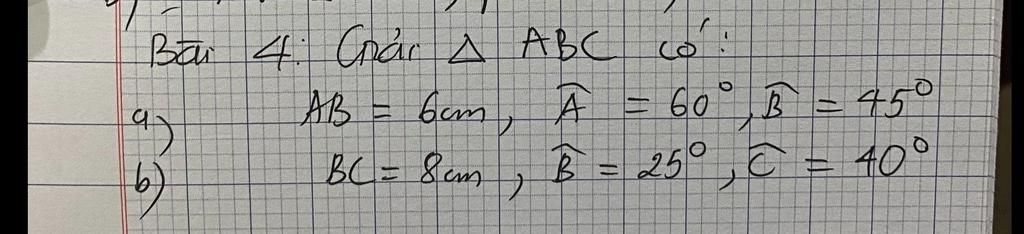 Bài 4: Giải Δ ABC có:
a) AB = 6cm, Â = 60°, B̂ = 45°
b) BC = 8cm, B̂ = 25°, Ĉ = 40°